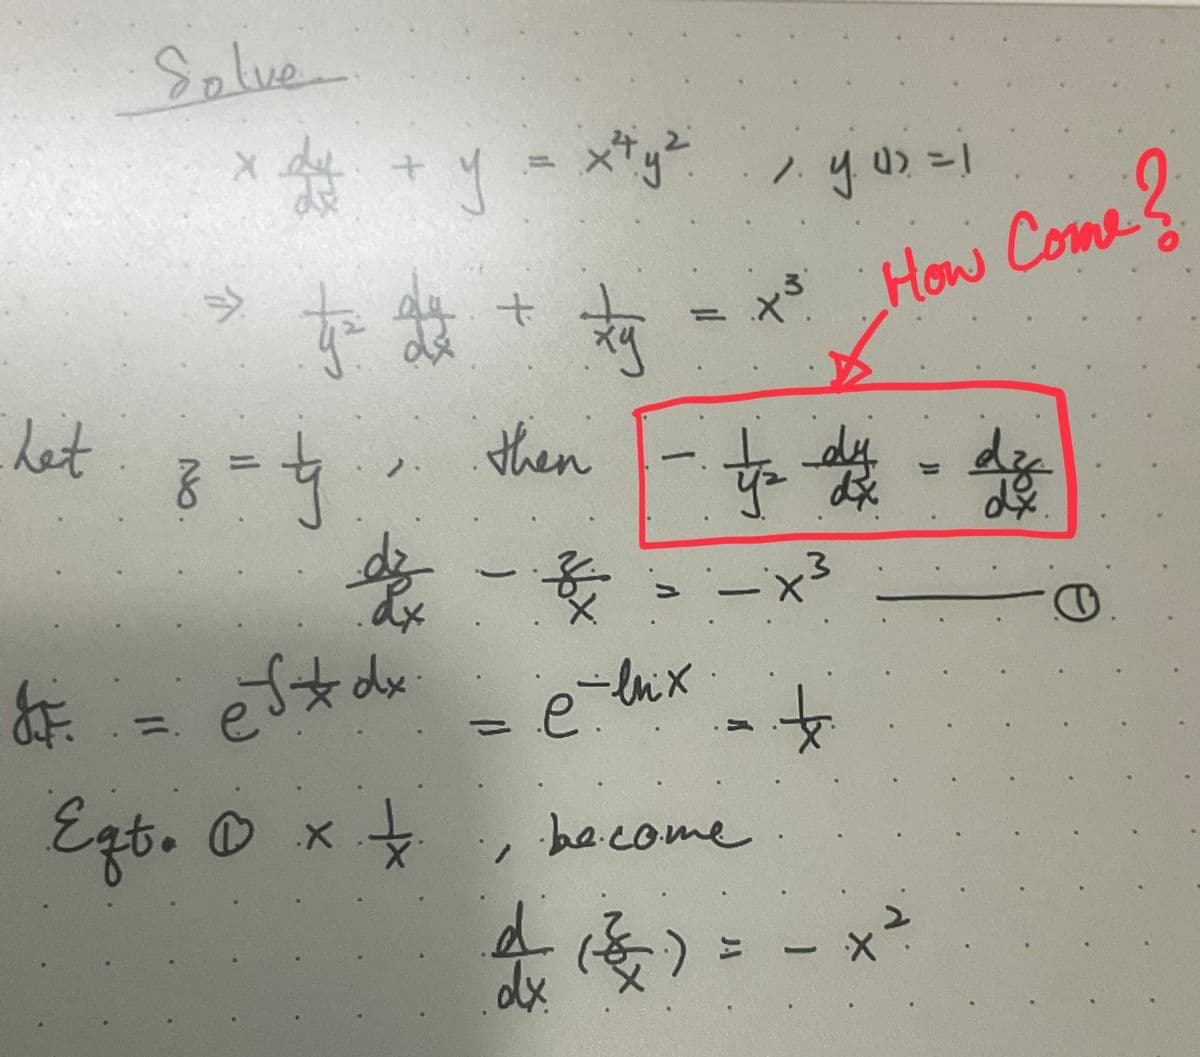 Solve
x dy/dx + y = x⁴y² , y(1) = 1
How Come?
⇒ 1/y² dy/dx + 1/xy = x³
Let z = 1/y , then - 1/y² dy/dx = dz/dx
dz/dx - z/x = - x³ ——— ①
I.F. = e^∫ 1/x dx = e^-ln x = 1/x
Eqt. ① x 1/x , become
d/dx (z/x) = - x²